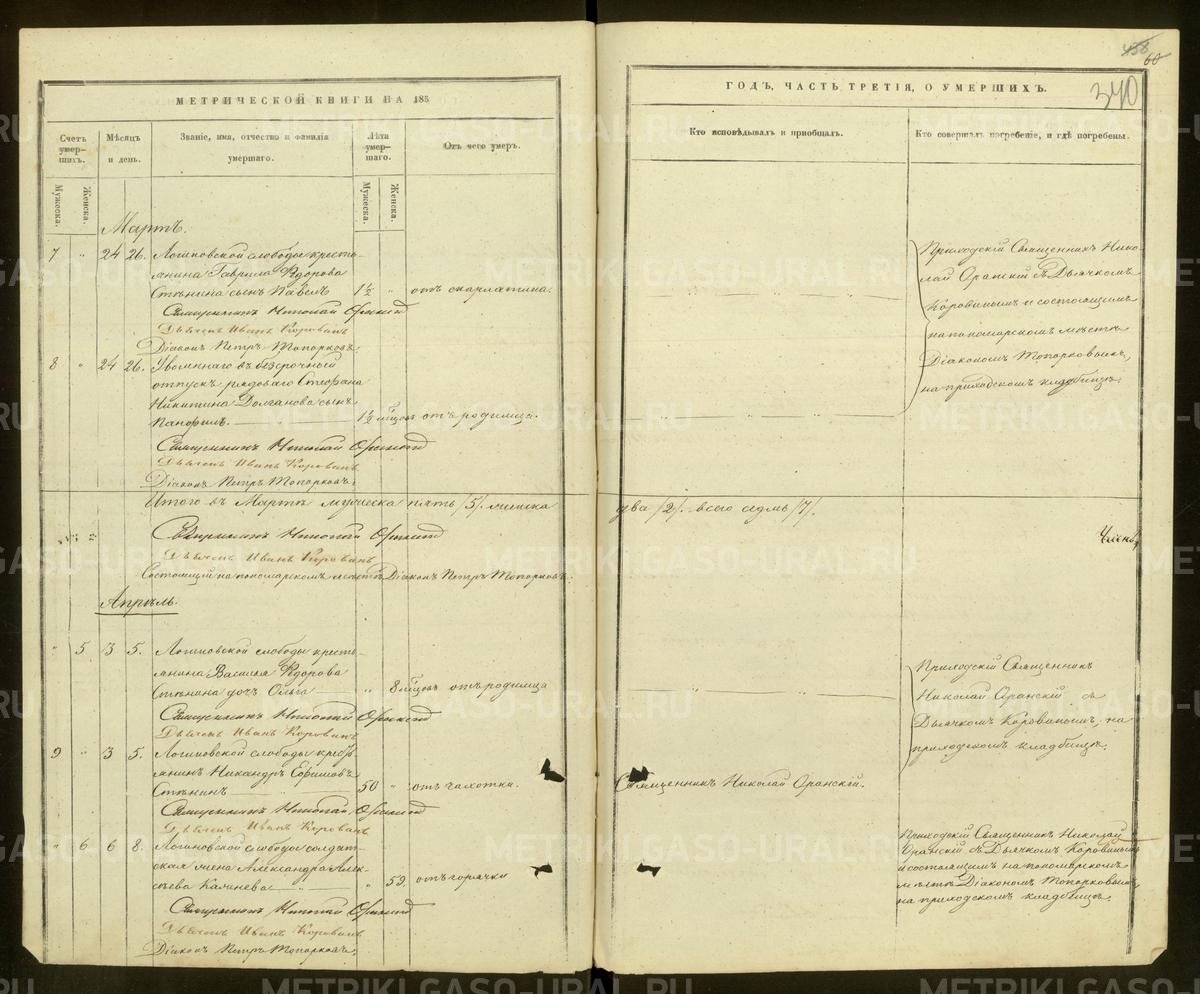 МЕТРИЧЕСКОЙ КНИГИ НА 185
Счетъ умер-шихъ.
Мужеска.
Женска.
Мѣсяцъ и день.
Званіе, имя, отчество и фамилія умершаго.
Лѣта умер-шаго.
Мужеска.
Женска.
Отъ чего умеръ.
Мартъ.
7 " 24 26. Логиновской слободы кресть-
янина Гаврила Ѳдорова
Стѣнина сынъ Павелъ 1½ " отъ скарлатина.
Священникъ Николай Оранскій
Дьячекъ Иванъ Коровинъ
Діаконъ Петръ Топорковъ.
8 " 24 26. Уволеннаго въ безсрочный
отпускъ рядоваго Стефана
Никитина Долганова сынъ
Панфилъ. 1½ отъ родимца.
Священникъ Николай Оранскій
Дьячекъ Иванъ Коровинъ
Діаконъ Петръ Топорковъ.
Итого въ Мартѣ мужеска пять /5/. женска
Священникъ Николай Оранскій
Дьячекъ Иванъ Коровинъ
Состоящій на пономарскомъ мѣстѣ Діаконъ Петръ Топорковъ.
Апрѣль.
" 5 3 5. Логиновской слободы кресть-
янина Василья Ѳдорова
Стѣнина дочь Ольга " 8 мѣсцовъ отъ родимца
Священникъ Николай Оранскій
Дьячекъ Иванъ Коровинъ
9 " 3 5. Логиновской слободы кресть-
янинъ Никандръ Ефимовъ
Стѣнинъ 50 " отъ чахотки.
Священникъ Николай Оранскій
Дьячекъ Иванъ Коровинъ
" 6 6 8. Логиновской слободы солдат-
ская жена Александра Алек-
сѣева Калинева " 59. отъ горячки
Священникъ Николай Оранскій
Дьячекъ Иванъ Коровинъ
Діаконъ Петръ Топорковъ.
458
60
340
ГОДЪ, ЧАСТЬ ТРЕТІЯ, О УМЕРШИХЪ.
Кто исповѣдывалъ и пріобщалъ.
Кто совершалъ погребеніе, и гдѣ погребены.
Приходскій Священникъ Нико-
лай Оранскій съ Дьячкомъ
Коровинымъ и состоящимъ
на пономарскомъ мѣстѣ
Діакономъ Топорковымъ,
на приходскомъ кладбищѣ.
два /2/. всего седмь /7/.
Членъ,
Приходскій Священникъ
Николай Оранскій съ
Дьячкомъ Коровинымъ, на
приходскомъ кладбищѣ.
Священникъ Николай Оранскій.
Приходскій Священникъ Николай
Оранскій съ Дьячкомъ Коровинымъ
и состоящимъ на пономарскомъ
мѣстѣ Діакономъ Топорковымъ,
на приходскомъ кладбищѣ.
METRIKI.GASO-URAL.RU